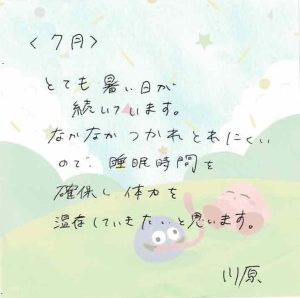 ＜7月＞
とても暑い日が
続いています。
なかなかつかれとれにくい
ので、睡眠時間を
確保し体力を
温存していきたいと思います。
川原